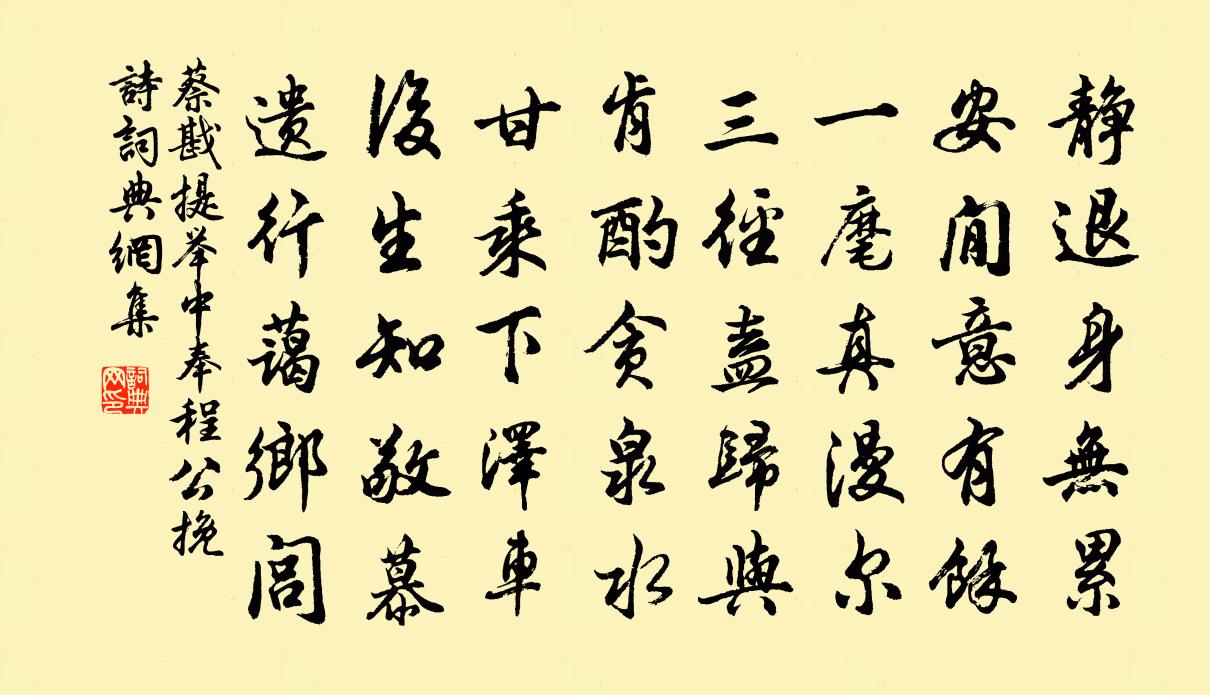 静退身無累
安閒意有餘
一麾真漫尔
三徑盍歸與
肯酌貪泉水
甘乘下澤車
後生知敬慕
遺行藹鄉閭
蔡戡提举中奉程公挽
詩詞典網集
詞典网印